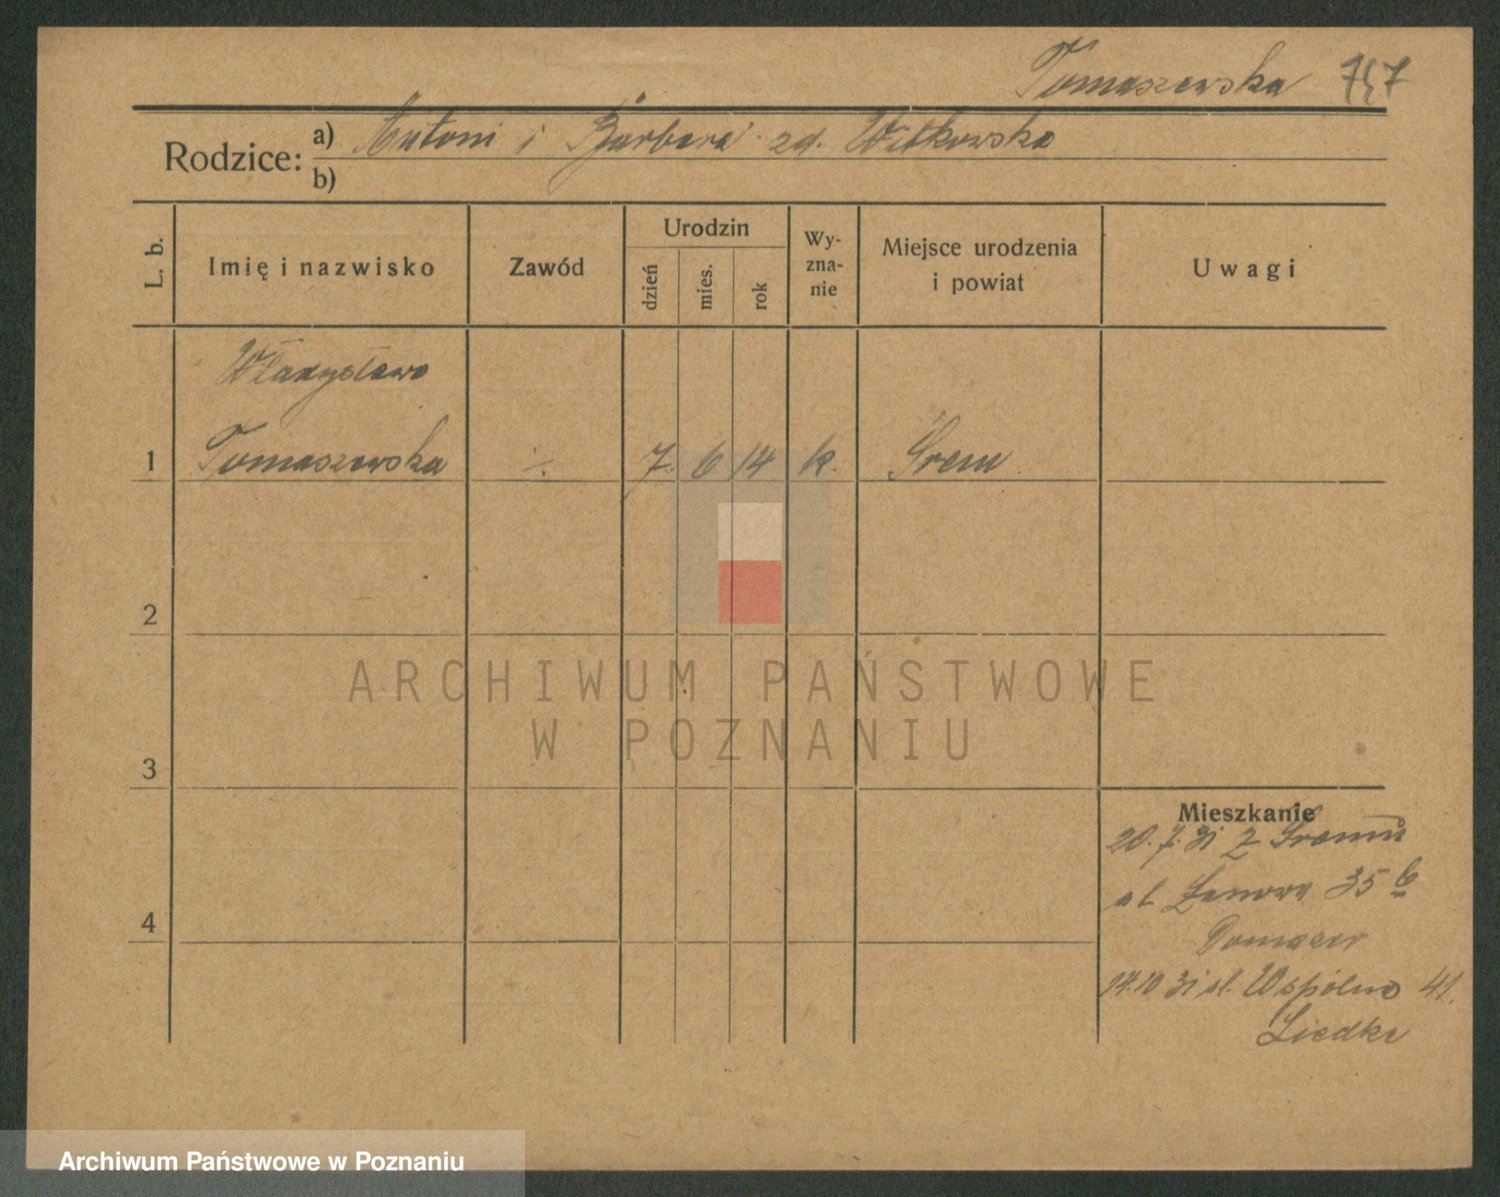 Tomaszewska 747
Rodzice: a) Antoni i Barbara zd. Witkowska
b)
L. b.
Imię i nazwisko
Zawód
Urodzin
dzień
mies.
rok
Wy-
zna-
nie
Miejsce urodzenia
i powiat
Uwagi
Władysława
1 Tomaszewska ÷ 7. 6 14 k. Śrem
2
3
4
Mieszkanie
20.7.31 z Śremu
ul. 35 b
14.10 31 ul. Wspólna 41.
Liedke
ARCHIWUM PAŃSTWOWE
W POZNANIU
Archiwum Państwowe w Poznaniu